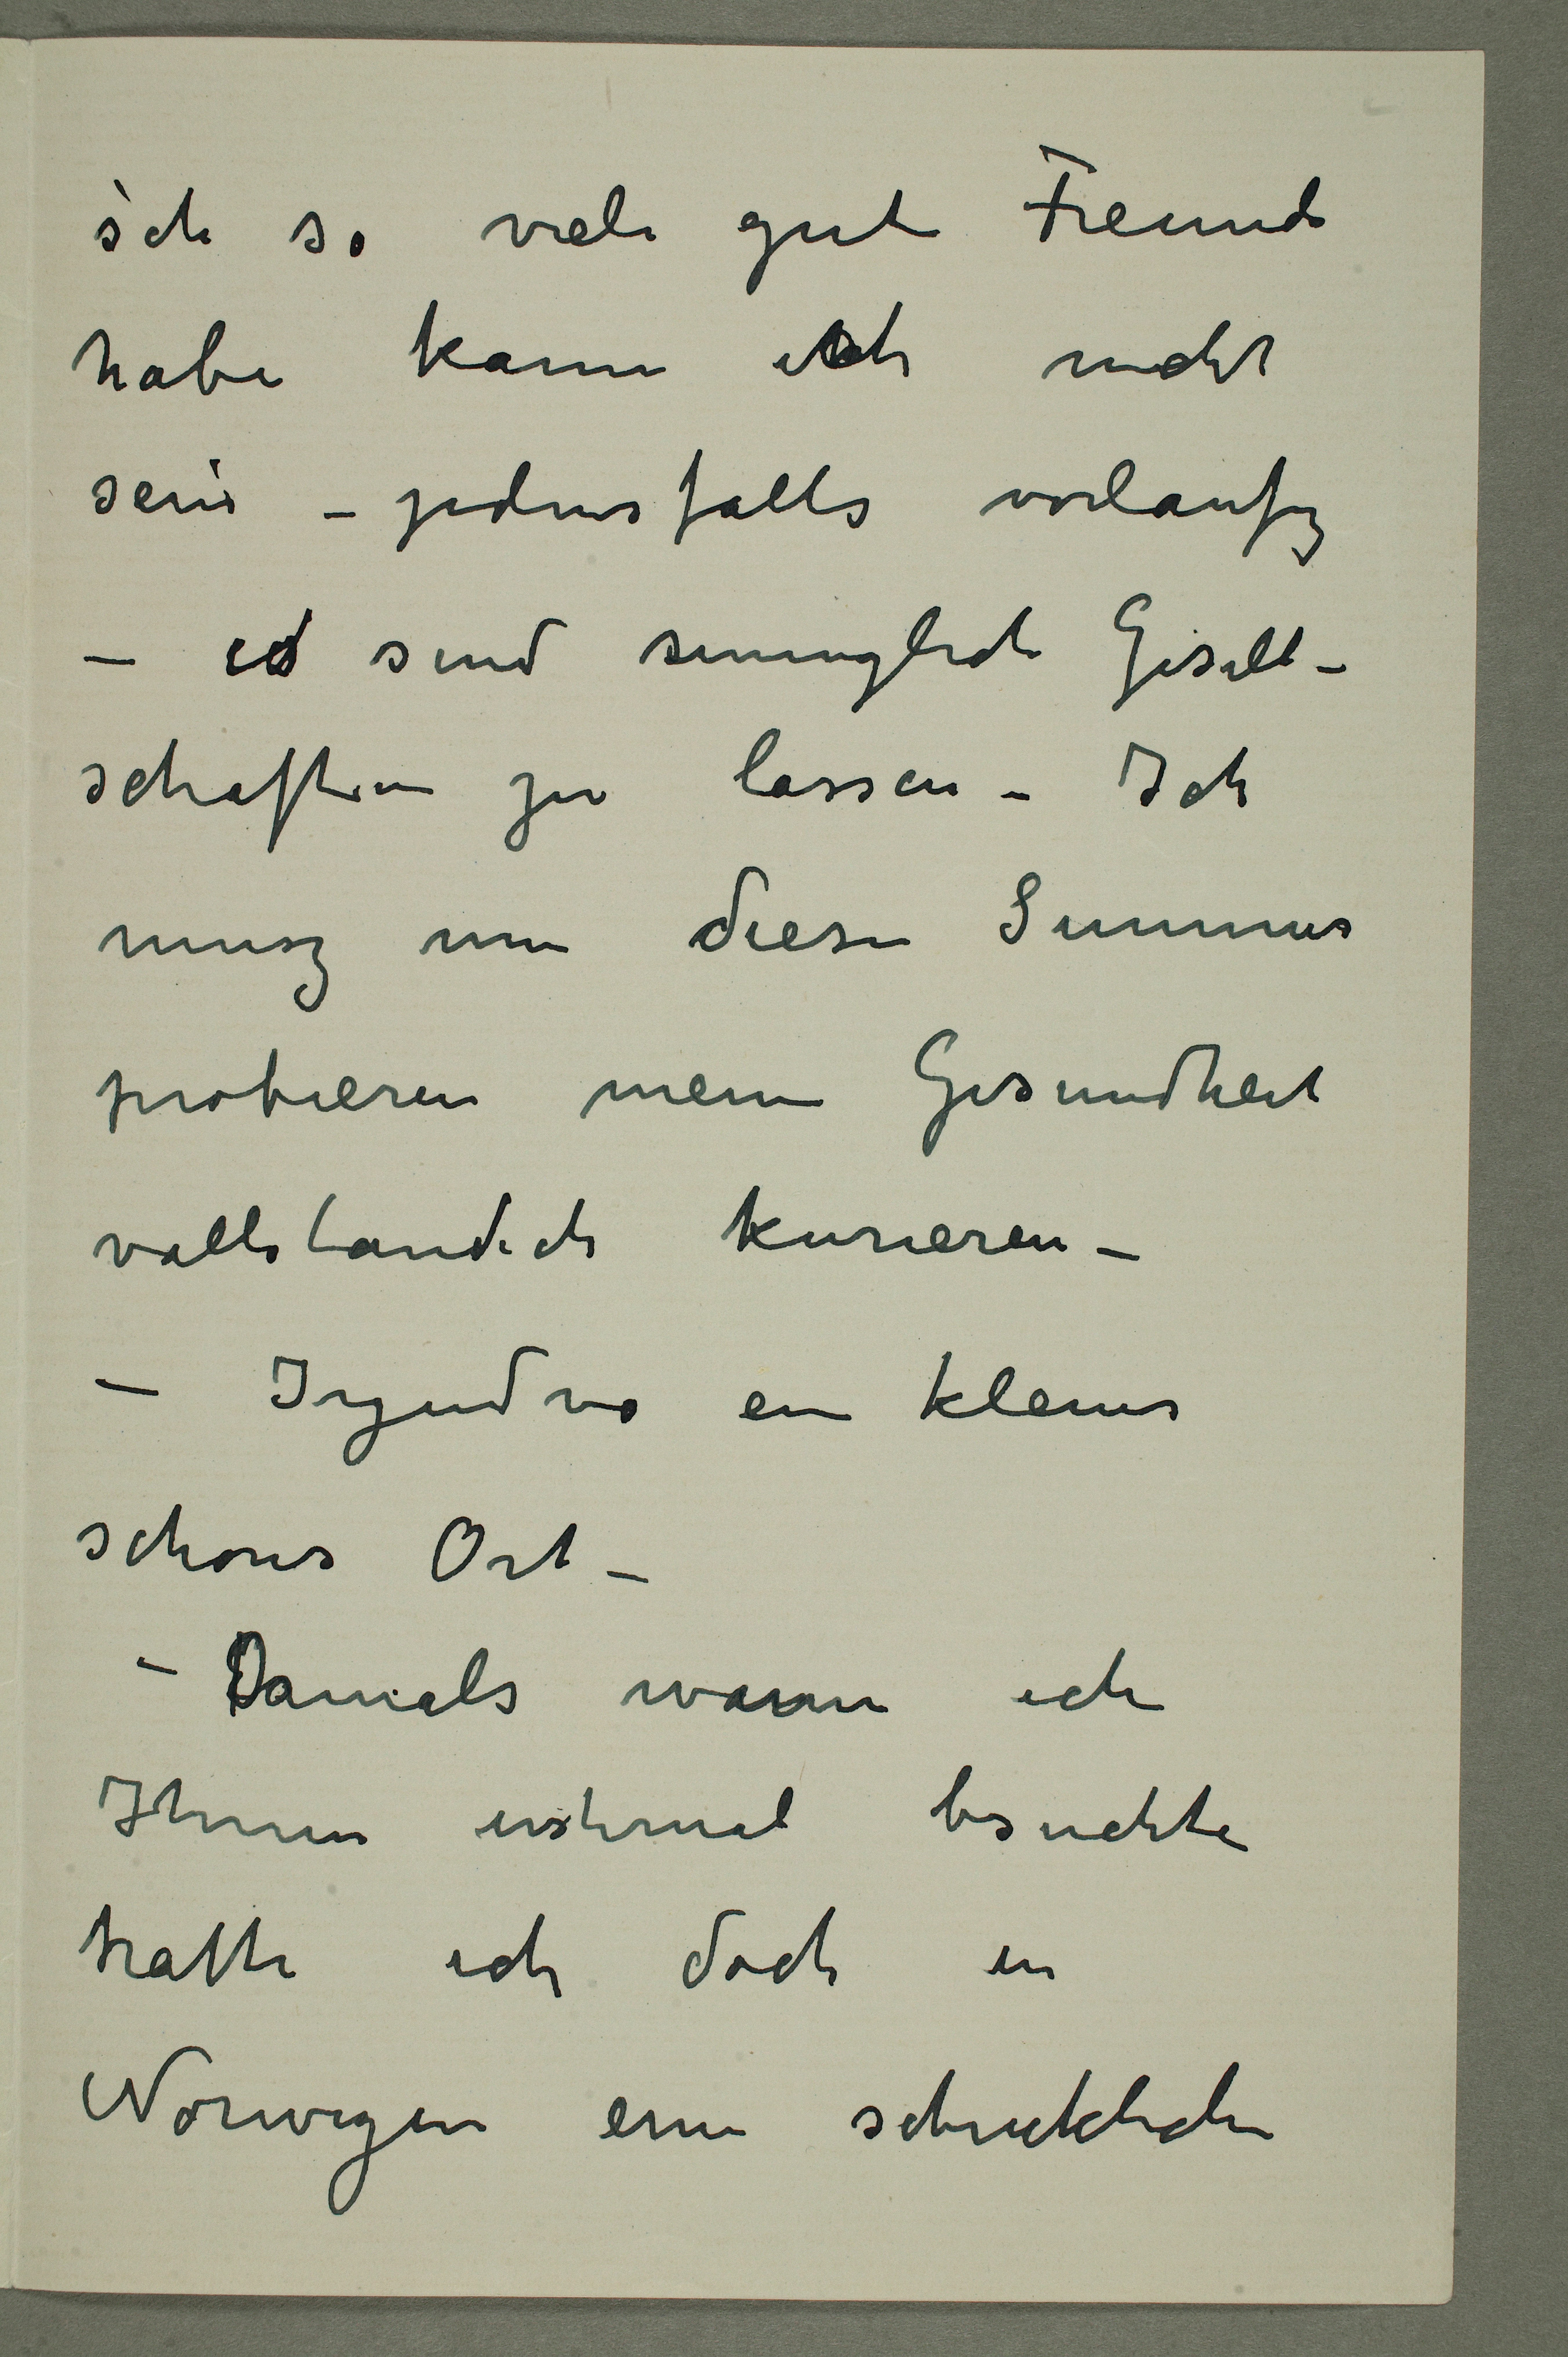 ich so viele gute Freunde
habe kann ich nicht
sein – jedensfalls vorlaufig
– es sind unmöglich Gesell-
schaften zu lassen – Ich
musz nun diese Summer
probieren meine Gesundheit
vollstandich kurieren –
– Irgendvo ein kleines
schones Ort –
– Damals wann ich
Ihnen erstemal besuchte
hatte ich doch in
Norwegen eine schreckliche